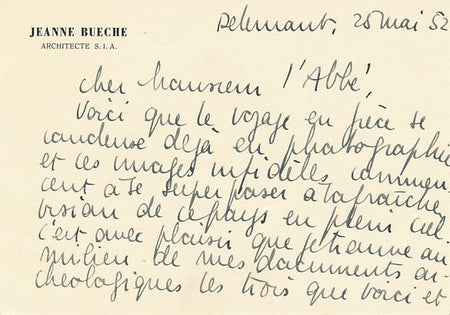 JEANNE BUECHE
ARCHITECTE S. I. A.
Delémont, 25 mai 52
cher monsieur l'Abbé,
Voici que le voyage en grèce se
condense déjà en photographie
et ces images infidèles commen-
cent à se superposer à la fraîche
vision de ce pays en plein ciel.
c'est avec plaisir que je trouve au
milieu de mes documents ar-
chéologiques les trois que voici et